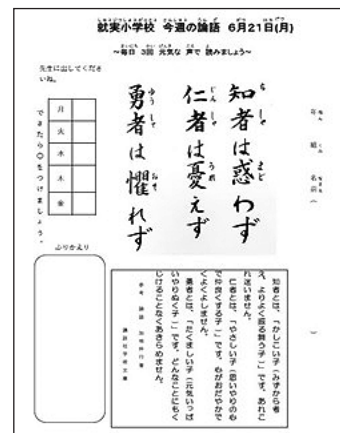 就実小学校 今週の論語 6月21日(月)
~毎日 3回 元気な 声で 読みましょう~
年 組 名前( )
知者は惑わず
仁者は憂えず
勇者は懼れず
先生に出してくださ
いね。
月
火
水
木
金
できたら○をつけましょう。
ふりかえり
知者とは、「かしこい子(みずから考
え、よりよく振る舞う子)」です。あれこ
れ迷いません。
仁者とは、「やさしい子(思いやりの心
で仲良くする子)」です。心がおだやかで
くよくよしません。
勇者とは、「たくましい子(元気いっぱ
いやりぬく子)」です。どんなことにもく
じけることなくあきらめません。